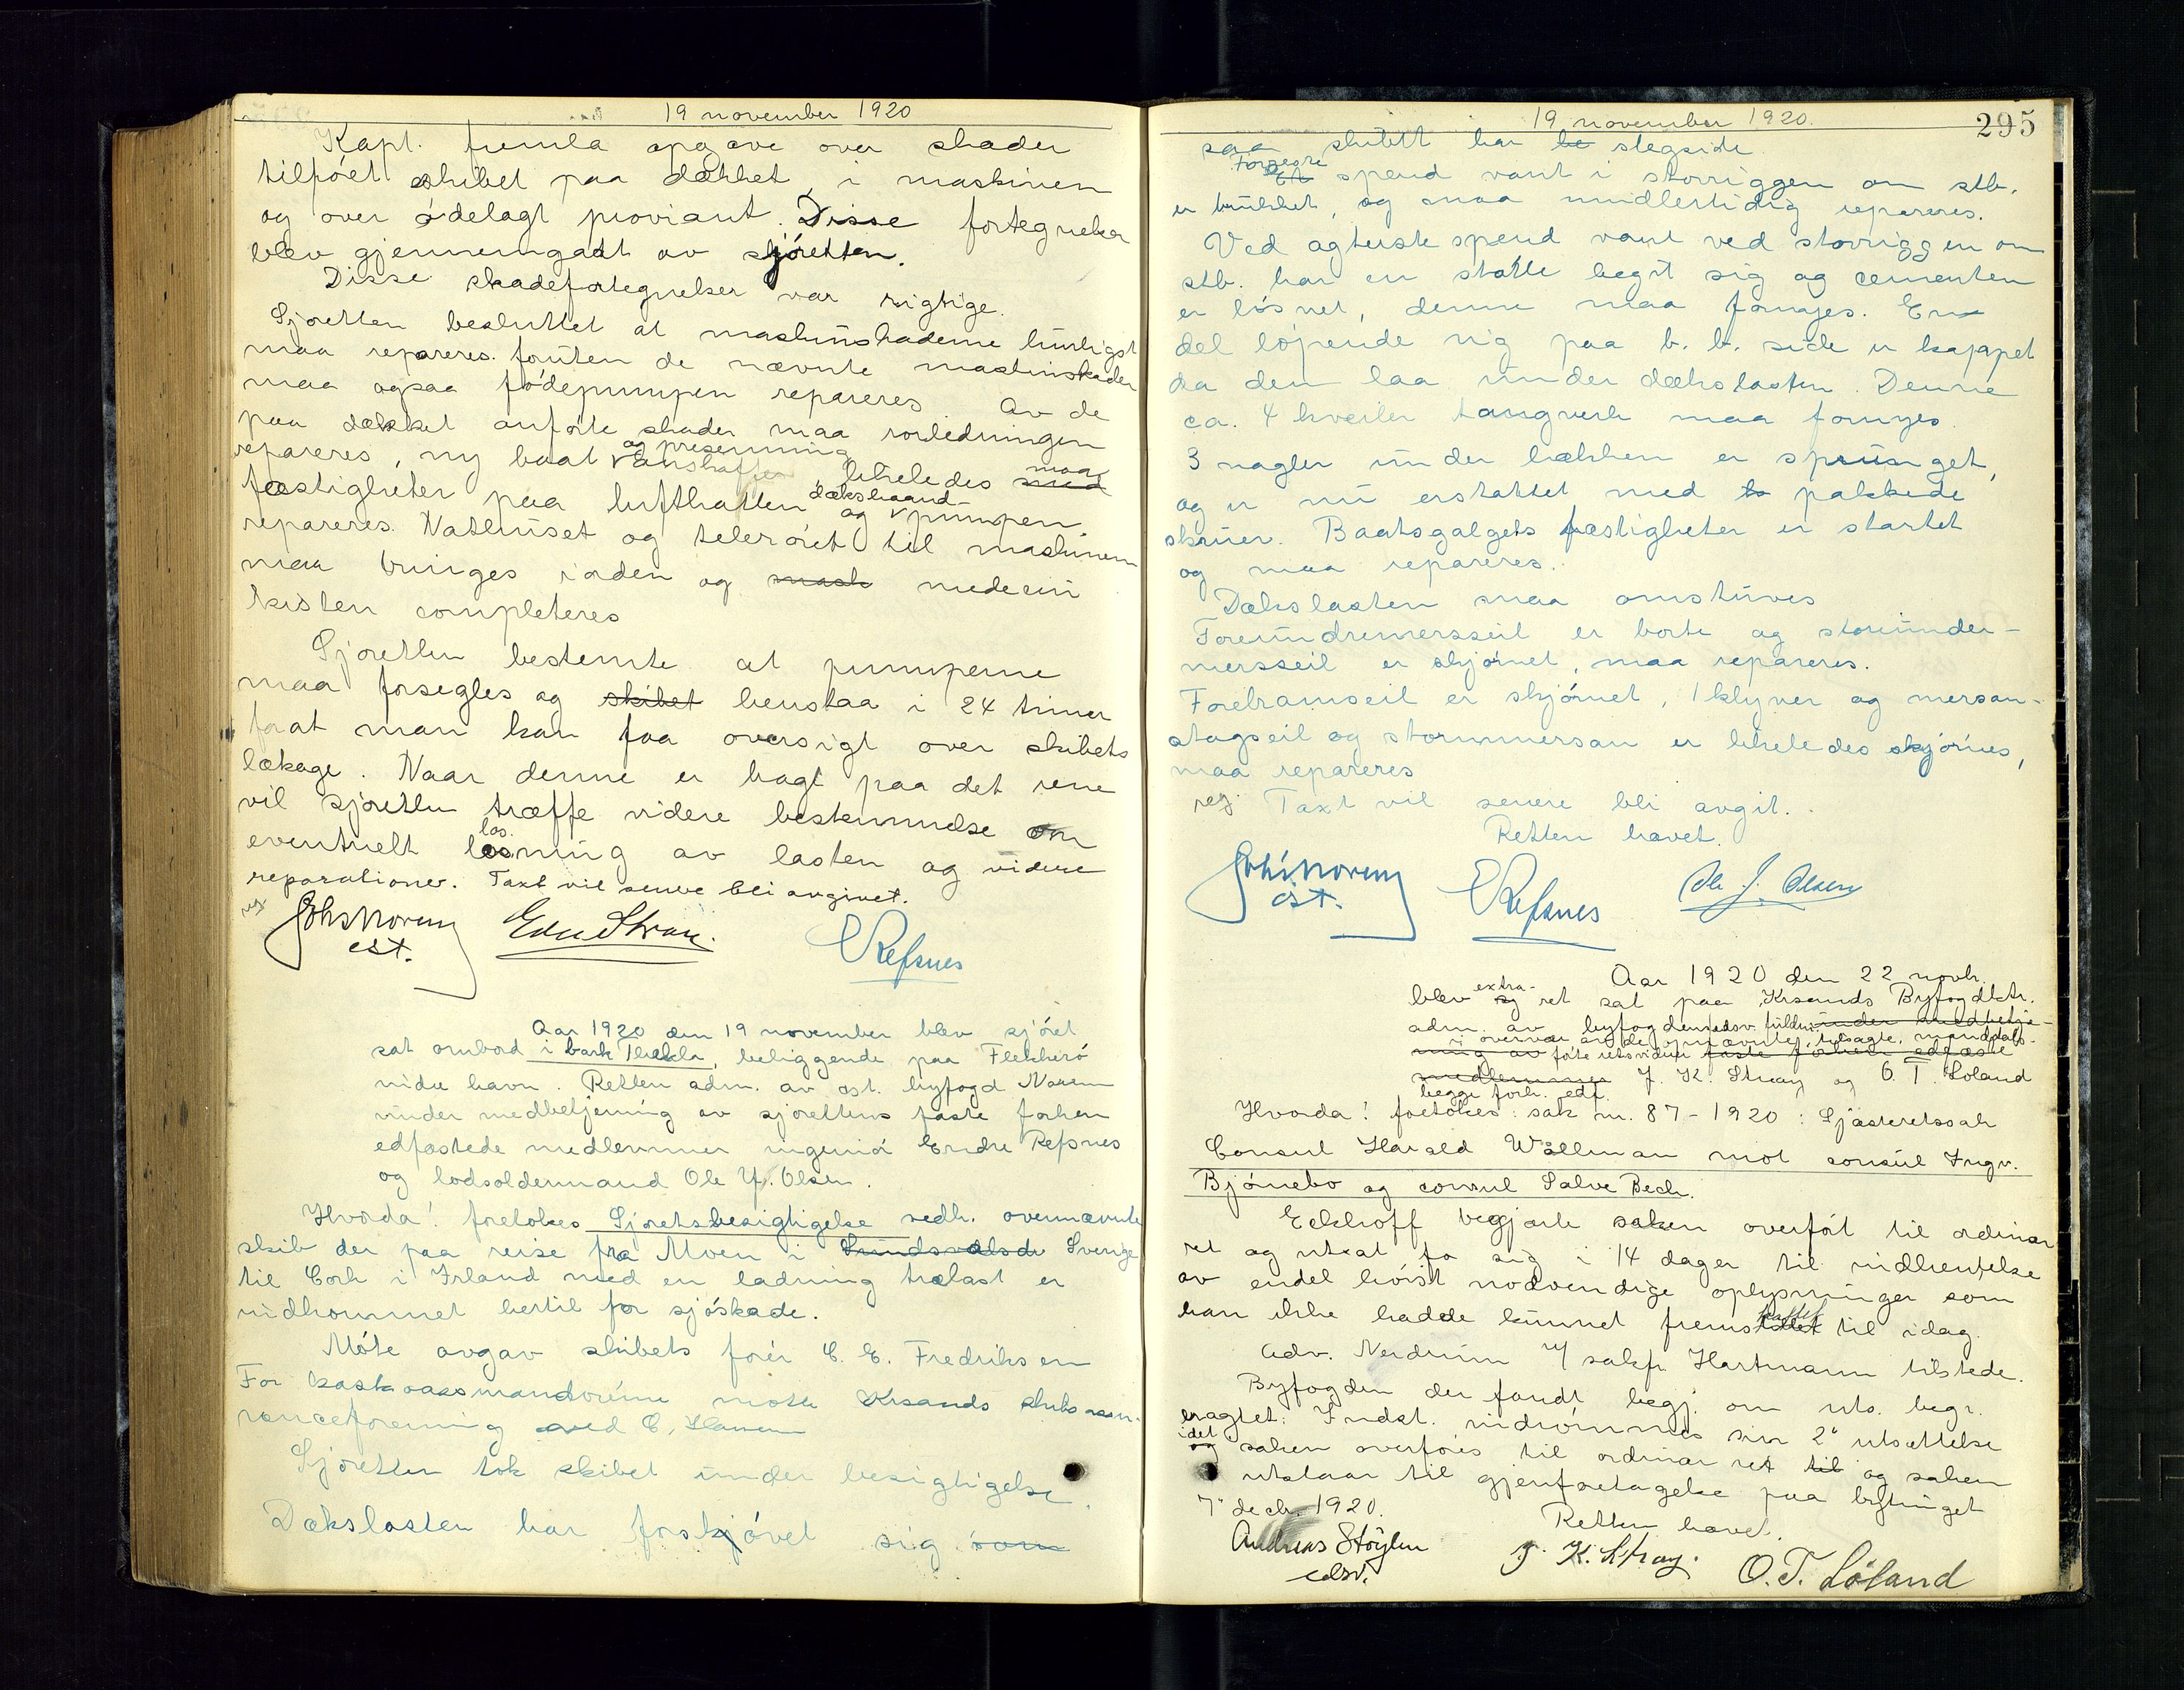 19 november 1920
Kapt. fremla opgave over skader
tilføiet skibet paa dækket, i maskinen
og over ødelagt proviant. Disse fortegnelser
blev gjennemgaat av sjøretten.
Disse skadefortegnelser var rigtige.
Sjøretten besluttet at maskinskaderne hurtigst
maa repareres. foruten de nævnte maskinskader
maa ogsaa fødepumpen repareres. Av de
paa dækket anførte skader maa rorledningen
og presenning
repareres, ny baat anskaffes likeledes maa med
fæstigheter paa lufthatten og dækshaand- pumpen
repareres. Nathuset og telerøret til maskinen
maa bringes i orden og mask medecin
kisten completeres
Sjøretten bestemte at pumperne
maa forsegles og skibet henstaa i 24 timer
forat man kan faa oversigt over skibets
lækage. Naar denne er bragt paa det rene
vil sjøretten træffe videre bestemmelse om
eventuelt løs. losning av lasten og videre
reparationer. Taxt vil senere bli avgivet.
reg
Johs Noreng Refsnes
cst.
Aar 1920 den 19 november blev sjøret
sat ombord i bark Thekla, beliggende paa Flekkerø
indre havn. Retten adm. av cst. byfogd Noreng
under medbetjening av sjørettens faste forhen
edfæstede medlemmer ingeniør Endre Refsnes
og lodsoldermand Ole J. Olsen.
Hvorda! foretokes Sjøretsbesigtigelse vedk. ovennævnte
skib der paa reise fra Moen i Sundsvalsde Sverige
til Cork i Irland med en ladning trælast er
indkommet hertil for sjøskade.
Møte avgav skibets fører C. E. Fredriksen
For kaskoassurandørerne møtte Krsands skibsassu-
ranceforening ved C. Hansen
Sjøretten tok skibet under besigtigelse.
Dækslasten har forskjøvet sig som
19 november 1920.
295
saa skutett har be slagside
Forreste
Et spend vant i storriggen om stb.
er brukket, og maa midlertidig repareres.
Ved agterste spend vant ved storriggen om
stb. har en støtte begit sig og cementen
er løsnet, denne maa fornyes. En
del løpende rig paa b. b. side er kappet
da den laa under dækslasten. Denne
ca. 4 kveiler taugverk maa fornyes.
3 nagler under bakken er sprunget,
og er nu erstattet med to pakkede
skruer. Baatsgalgets fæstigheter er startet
og maa repareres.
Dækslasten maa omstuves
Foreundremersseil er borte og storeunder-
mersseil er skjørnet, maa repareres.
Forebramseil er skjørnet, 1 klyver og mersan-
stagseil og stormmersan er likeledes skjørnes,
maa repareres
reg. Taxt vil senere bli avgit.
Retten hævet.
Johs Noreng Refsnes Ole J. Olsen
cst.
Aar 1920 den 22 novbr.
blev extra- sj ret sat paa Krsands Byfogdktr.
adm. av byfogdens edsv. fuldm. under medbetje-
i overvær av de opnævnte, tilsagte, mandtals-
ning av førte retsvidner faste forhen edfæste
medlemmer J. K. Stray og O. T. Løland
begge forh. edf.
Hvorda! foretokes: sak nr. 87-1920: Gjæsteretssak
Consul Harald Wallman mot consul Ingv.
Bjørnebo og consul Salve Bech.
Eckhoff begjærte saken overført til ordinær
ret og utsat fo sig i 14 dager til indhentelse
av endel høist nødvendige oplysninger som
han ikke hadde kunnet fremskaffet til idag.
Adv. Nerdrum v/ sakfr. Hartmann tilstede.
Byfogden der fandt begj. om uts. begr.
eragtet: Indst. indrømmes sin 2' utsættelse
idet
og saken overføres til ordinær ret til og saken
utstaar til gjenforetagelse paa bytinget
7' decbr. 1920.
Retten hævet.
Andreas Støylen J. K. Stray. O. T. Løland
edsv.